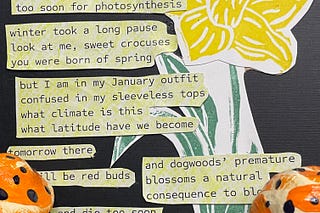 too soon for photosynthesis
winter took a long pause
look at me, sweet crocuses
you were born of spring
but I am in my January outfit
confused in my sleeveless tops
what climate is this
what latitude have we become
tomorrow there
be red buds
and dogwoods' premature
blossoms a natural
consequence to
and die too soon